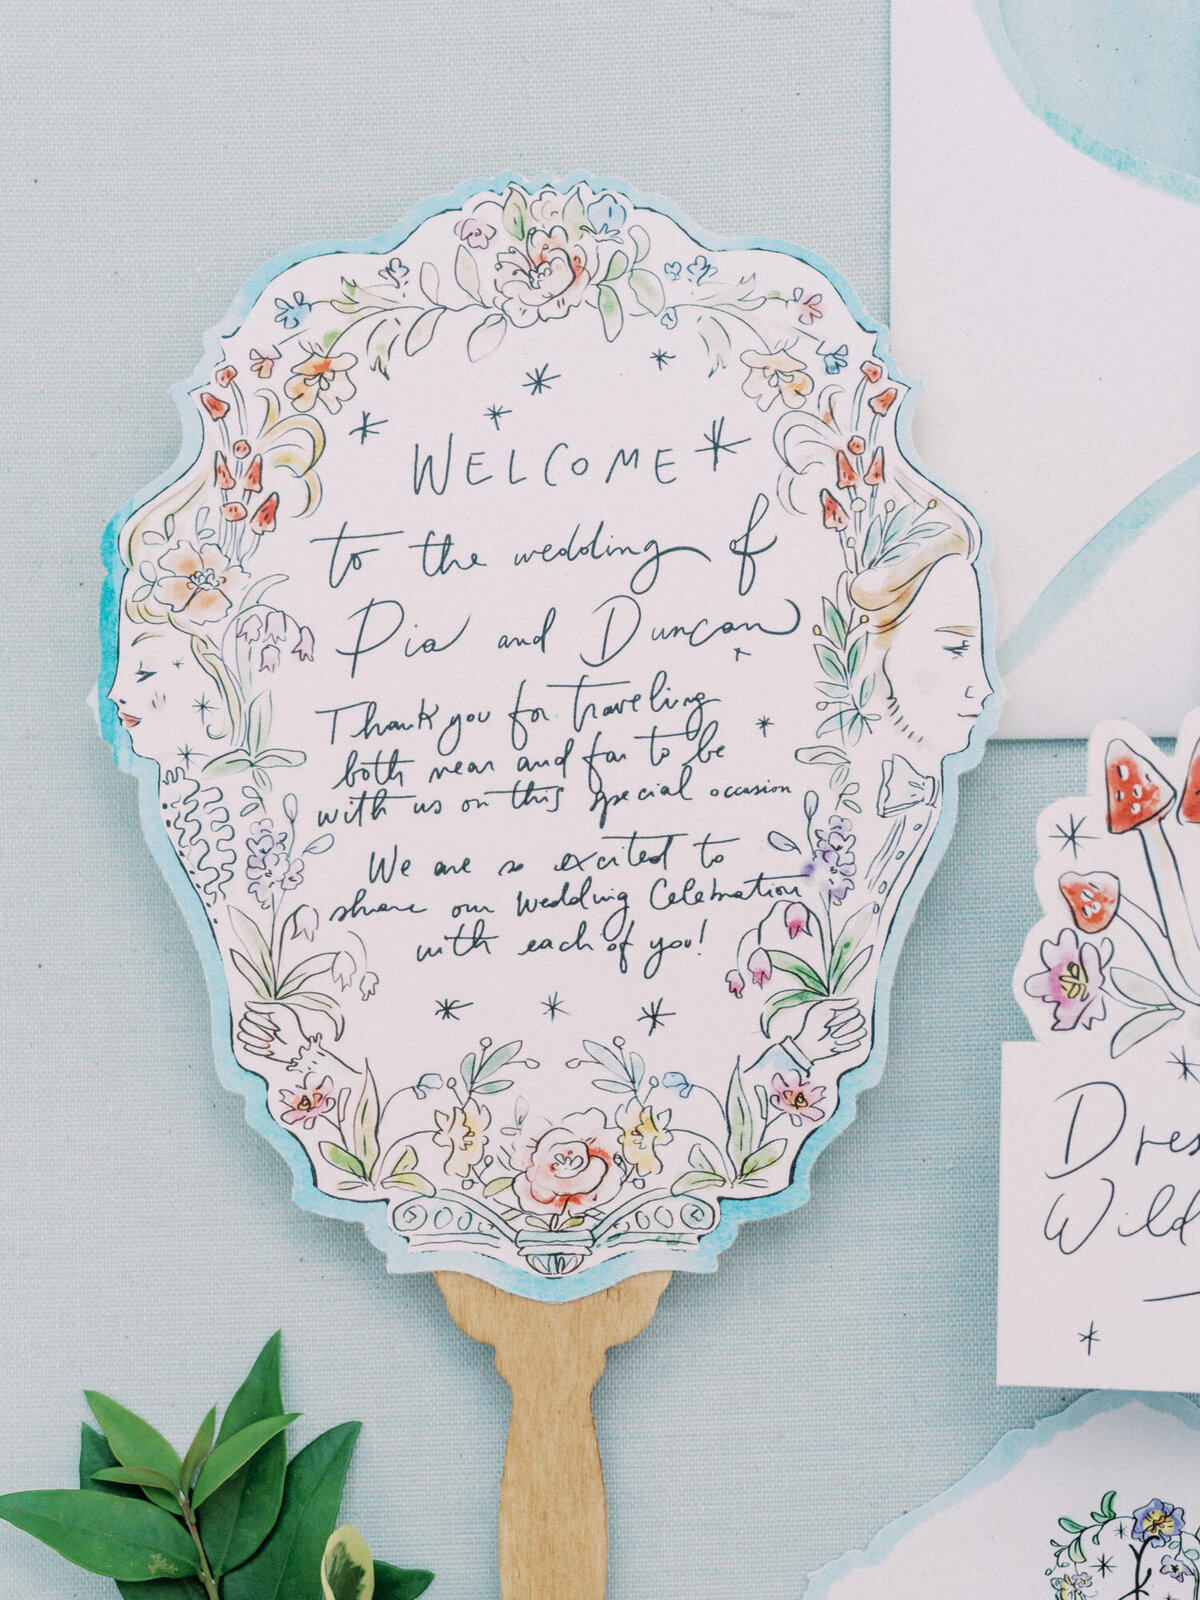 WELCOME
to the wedding of
Pia and Duncan
Thank you for traveling
both near and far to be
with us on this special occasion
We are so excited to
share our wedding Celebration
with each of you!
Dres
Wild